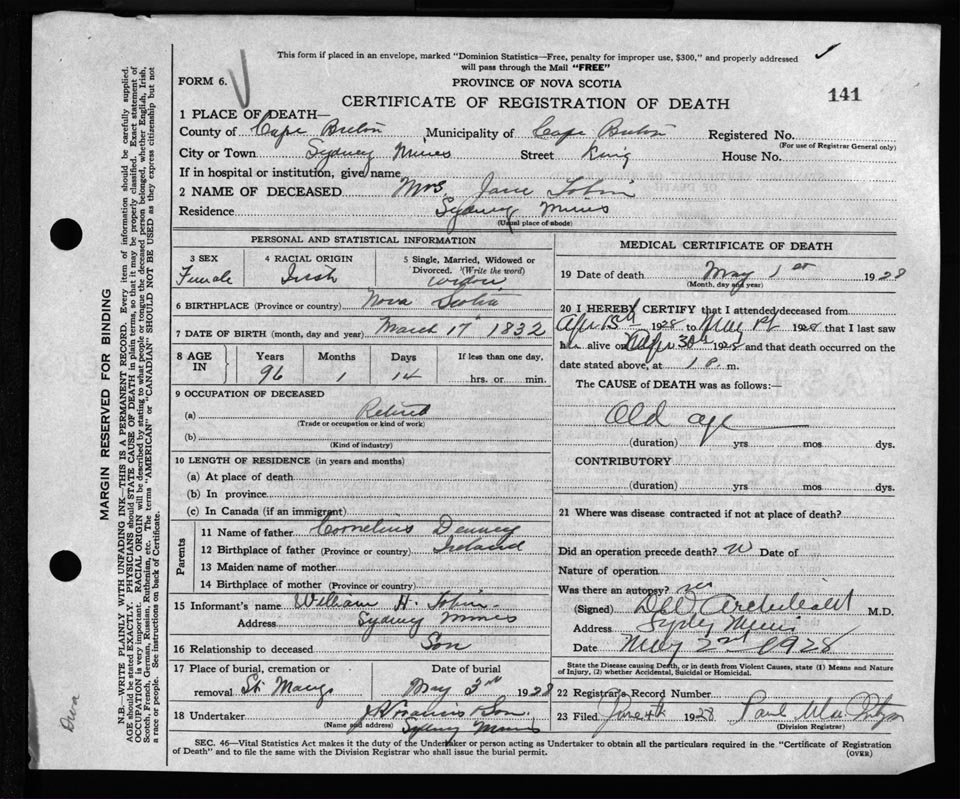 This form if placed in an envelope, marked "Dominion Statistics—Free, penalty for improper use, $300," and properly addressed
will pass through the Mail "FREE"
FORM 6.
PROVINCE OF NOVA SCOTIA
CERTIFICATE OF REGISTRATION OF DEATH
141
1 PLACE OF DEATH—
County of Cape Breton Municipality of Cape Breton Registered No.
(For use of Registrar General only)
City or Town Sydney Mines Street King House No.
If in hospital or institution, give name
2 NAME OF DECEASED Mrs Jane Tobin
Residence Sydney Mines
(Usual place of abode)
PERSONAL AND STATISTICAL INFORMATION
3 SEX Female
4 RACIAL ORIGIN Irish
5 Single, Married, Widowed or
Divorced. (Write the word)
widow
6 BIRTHPLACE (Province or country) Nova Scotia
7 DATE OF BIRTH (month, day and year) March 17th 1832
8 AGE IN
Years Months Days If less than one day,
96 1 14 hrs. or min.
9 OCCUPATION OF DECEASED
(a) Retired
(Trade or occupation or kind of work)
(b)
(Kind of industry)
10 LENGTH OF RESIDENCE (in years and months)
(a) At place of death
(b) In province
(c) In Canada (if an immigrant)
Parents
11 Name of father Cornelius
12 Birthplace of father (Province or country) Ireland
13 Maiden name of mother
14 Birthplace of mother (Province or country)
15 Informant's name William H. Tobin
Address Sydney Mines
16 Relationship to deceased Son
17 Place of burial, cremation or Date of burial
removal St. Marys May 3rd 1928
18 Undertaker
(Name and address) Sydney Mines
MEDICAL CERTIFICATE OF DEATH
19 Date of death May 1st 1928
(Month, day and year)
20 I HEREBY CERTIFY that I attended deceased from
Apr 13th 1928 to May 1st 1928 that I last saw
her alive on Apr 30th 1928 and that death occurred on the
date stated above, at 1 P. m.
The CAUSE of DEATH was as follows:—
Old age
(duration) yrs mos dys.
CONTRIBUTORY
(duration) yrs. mos. dys.
21 Where was disease contracted if not at place of death?
Did an operation precede death? Date of
Nature of operation
Was there an autopsy?
(Signed) Archibald M.D.
Address Sydney Mines
Date May 2nd 1928
State the Disease causing Death, or in death from Violent Causes, state (1) Means and Nature
of Injury, (2) whether Accidental, Suicidal or Homicidal.
22 Registrar's Record Number
23 Filed June 4th 1928 Paul
(Division Registrar)
SEC. 46—Vital Statistics Act makes it the duty of the Undertaker or person acting as Undertaker to obtain all the particulars required in the "Certificate of Registration
of Death" and to file the same with the Division Registrar who shall issue the burial permit.
(OVER)
MARGIN RESERVED FOR BINDING
N.B.—WRITE PLAINLY WITH UNFADING INK—THIS IS A PERMANENT RECORD. Every item of information should be carefully supplied.
AGE should be stated EXACTLY. PHYSICIANS should STATE CAUSE OF DEATH in plain terms, so that it may be properly classified. Exact statement of
OCCUPATION is very important. RACIAL ORIGIN will be described by stating to what people or tongue the deceased person belonged, whether English, Irish,
Scotch, French, German, Russian, Ruthenian, etc. The terms "AMERICAN" or "CANADIAN" SHOULD NOT BE USED as they express citizenship but not
a race or people. See instructions on back of Certificate.